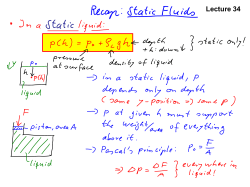 Recap: Static Fluids Lecture 34
• In a static liquid:
p(h) = p₀ + ρ_L g h ← depth + h: down } static only!
pressure at surface
density of liquid
h
p(h)
liquid
→ in a static liquid, p
depends only on depth
(same y-position ⇒ same p)
→ p at given h must support
the weight/area of everything
above it.
F
piston, area A
liquid
→ Pascal's principle: P₀ = F/A
⇒ ΔP = ΔF/A } everywhere in liquid!